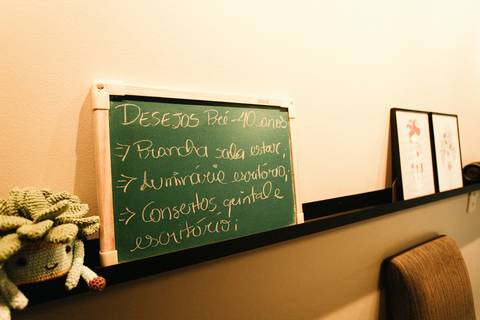 DESEJOS Pré-40 anos
⇒ Prancha sala estar;
⇒ Luminária escritório;
⇒ Consertos quintal e
escritório;